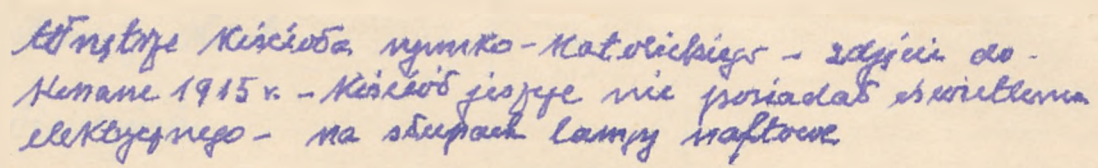 Wnętrze Kościoła rzymsko-Katolickiego - zdjęcie do-
Konane 1915 r. - Kościół jeszcze nie posiadał oświetlenia
elektrycznego - na słupach lampy naftowe